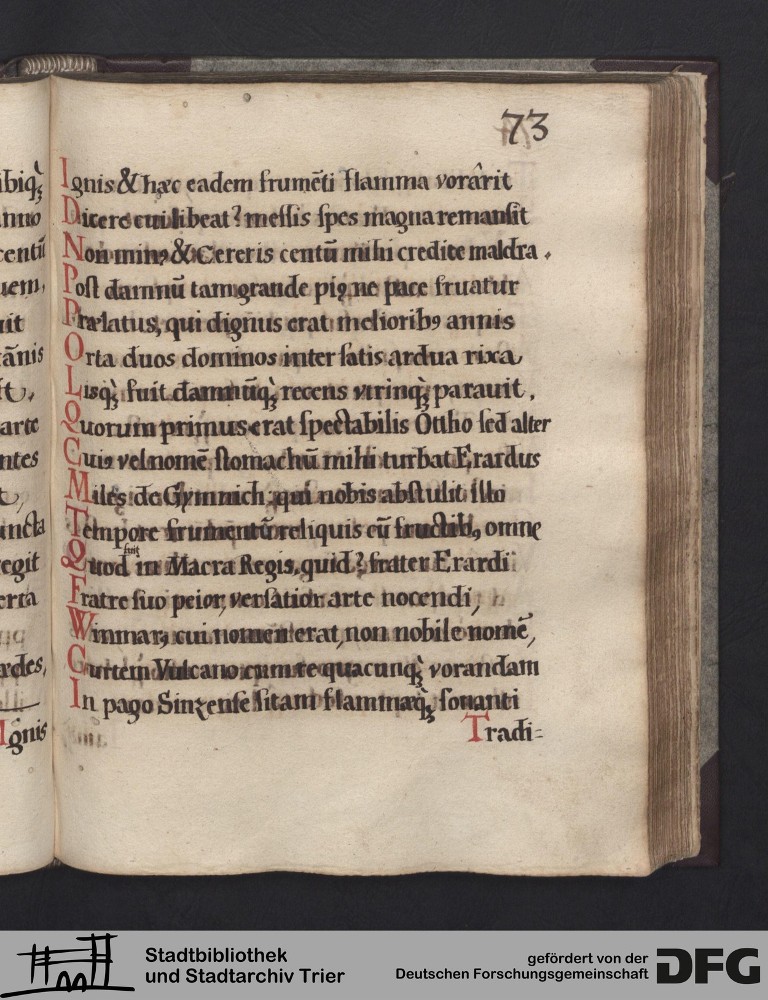 73
ibiq̀ꝫ
anno
centū
uem,
uit
tānis
arte
ntes
uncta
regit
erta
ædes,
Ignis
Ignis & hæc eadem frumēti flamma vorârit
Dicere cui libeat? messis spes magna remansit
Non minꝰ & Cereris centū mihi credite maldra.
Post damnū tam grande pigne pace fruatur
Prælatus, qui dignus erat melioribꝰ annis
Orta duos dominos inter satis ardua rixa
Lisq̀ꝫ fuit damnūq̀ꝫ recens utrinq̀ꝫ parauit,
Quorum primus erat spectabilis Ottho sed alter
Cuiꝰ vel nomē stomachū mihi turbat Erardus
Miles de Gymnich, qui nobis abstulit isto
Tempore frumentū reliquis cū fructibꝰ, omne
Quod fuit in Macra Regis, quid? frater Erardi
Fratre suo peior, versatior arte nocendi,
Winmarꝰ cui nomen erat, non nobile nomē,
Curtem Vulcano cum te quacunq̀ꝫ vorandam
In pago Sinzense sitam flammæq̀ꝫ sonanti
Tradi=
Stadtbibliothek
und Stadtarchiv Trier
gefördert von der
Deutschen Forschungsgemeinschaft
DFG